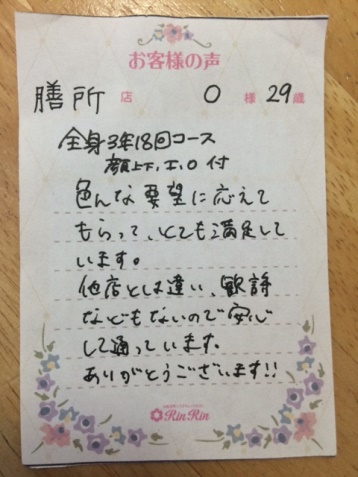 お客様の声
膳所 店 O 様 29歳
全身3年18回コース
顔上下, I, O 付
色んな要望に応えて
もらって、とても満足して
います。
他店とは違い、勧誘
などもないので安心
して通っています。
ありがとうございます!!
RinRin